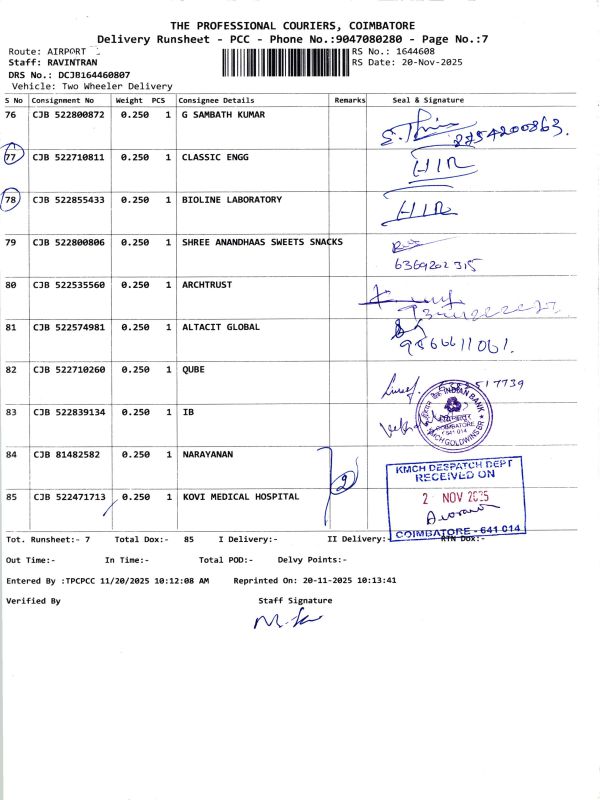 THE PROFESSIONAL COURIERS, COIMBATORE
Delivery Runsheet - PCC - Phone No.:9047080280 - Page No.:7
Route: AIRPORT
RS No.: 1644608
Staff: RAVINTRAN
RS Date: 20-Nov-2025
DRS No.: DCJB164460807
Vehicle: Two Wheeler Delivery
S No Consignment No Weight PCS Consignee Details Remarks Seal & Signature
76 CJB 522800872 0.250 1 G SAMBATH KUMAR
8754200863.
77 CJB 522710811 0.250 1 CLASSIC ENGG
HIR
78 CJB 522855433 0.250 1 BIOLINE LABORATORY
HIR
79 CJB 522800806 0.250 1 SHREE ANANDHAAS SWEETS SNACKS
6369202315
80 CJB 522535560 0.250 1 ARCHTRUST
81 CJB 522574981 0.250 1 ALTACIT GLOBAL
9866611061.
82 CJB 522710260 0.250 1 QUBE
83 CJB 522839134 0.250 1 IB
INDIAN BANK
COIMBATORE
641 014
KMCH GOLDWINS BR
84 CJB 81482582 0.250 1 NARAYANAN
2
KMCH DESPATCH DEPT
RECEIVED ON
2 NOV 2025
COIMBATORE - 641 014
85 CJB 522471713 0.250 1 KOVI MEDICAL HOSPITAL
Tot. Runsheet:- 7 Total Dox:- 85 I Delivery:- II Delivery:- RTN Dox:-
Out Time:- In Time:- Total POD:- Delvy Points:-
Entered By :TPCPCC 11/20/2025 10:12:08 AM Reprinted On: 20-11-2025 10:13:41
Verified By Staff Signature